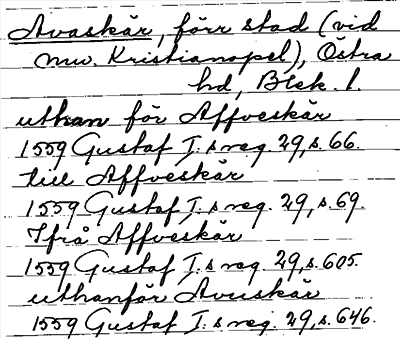 Avaskär, förr stad (vid
nuv. Kristianopel), Östra
hd, Blek. l.
uthan för Affveskär
1559 Gustaf I:s reg. 29, s. 66.
till Affveskär
1559 Gustaf I:s reg. 29, s. 69.
Ifrå Affveskär
1559 Gustaf I:s reg. 29, s. 605.
uthanför Avuskär
1559 Gustaf I:s reg. 29, s. 646.